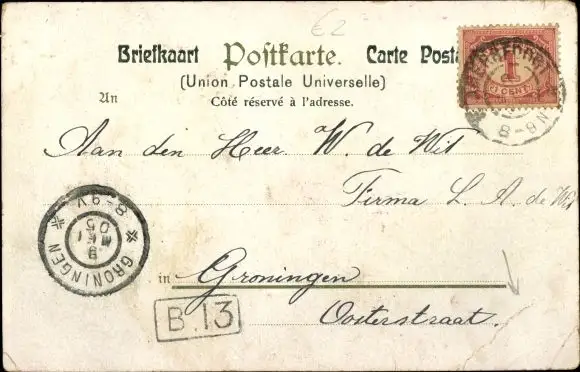 €2
Briefkaart Postkarte. Carte Posta
(Union Postale Universelle)
An
Côté réservé à l'adresse.
1
CENT
8-9N
Aan den Heer. W. de Wit
Firma L. A. de Wit
8-9V
MEI
05
GRONINGEN
in Groningen
Oosterstraat.
B 13